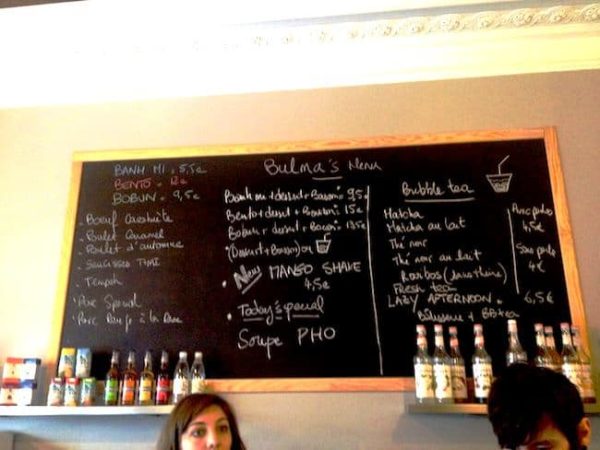 BANH MI : 5,5€
BENTO : 12€
BOBUN : 9,5€
Boeuf
Poulet Caramel
Poulet d'automne
Tempeh
Porc Special
Porc Rouge à la
Bulma's Menu
Banh mi + dessert + Boisson : 9,5€
Bento + dessert + Boisson : 15€
Bobun + dessert + Boisson : 13,5€
(Dessert + Boisson) ou
New MANGO SHAKE
4,5€
Today's special
Soupe PHO
Bubble tea
Matcha
Matcha au lait
Thé noir
Thé noir au lait
Rooibos (sans théine)
Fresh tea
LAZY AFTERNOON : 6,5€
+ BB tea
Avec perles
4,5€
Sans perle
4€